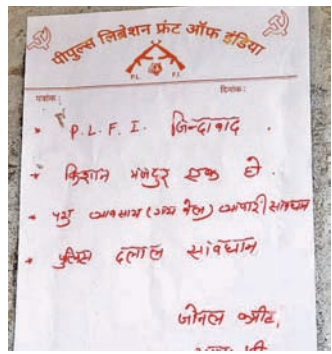 पीपुल्स लिब्रेशन फ्रंट ऑफ इंडिया
P.L. F.I.
पत्रांक: दिनांक:
* P.L.F.I. जिन्दावाद.
* किशान मजदुर एक हो.
* पशु व्यवसाय (गाय बैल) व्यापारी सावधान
* पुलिस दलाल सावधान
जोनल कमिट,